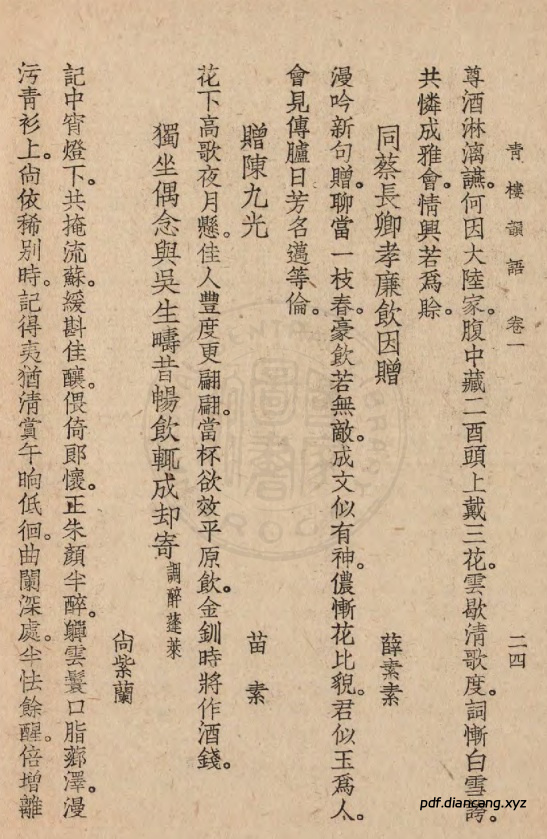 青樓韻語 卷一 二四
尊酒淋漓讌。何因大陸家。腹中藏二酉。頭上戴三花。雲歇清歌度。詞慚白雪誇。
共憐成雅會。情興若爲賒。
同蔡長卿孝廉飲因贈 薛素素
漫吟新句贈。聊當一枝春。豪飲若無敵。成文似有神。儂慚花比貌。君似玉爲人。
會見傳臚日。芳名邁等倫。
贈陳九光 苗素
花下高歌夜月懸。佳人豐度更翩翩。當杯欲效平原飲。金釧時將作酒錢。
獨坐偶念與吳生疇昔暢飲輒成却寄 調醉蓬萊
尙紫蘭
記中宵燈下。共掩流蘇。緩斟佳釀。偎倚郞懷。正朱顏半醉。嚲雲鬟口脂薌澤。漫
污靑衫上。尙依稀別時。記得夷猶淸賞。午晌低徊。曲闌深處。半怯餘酲。倍增離
pdf.diancang.xyz